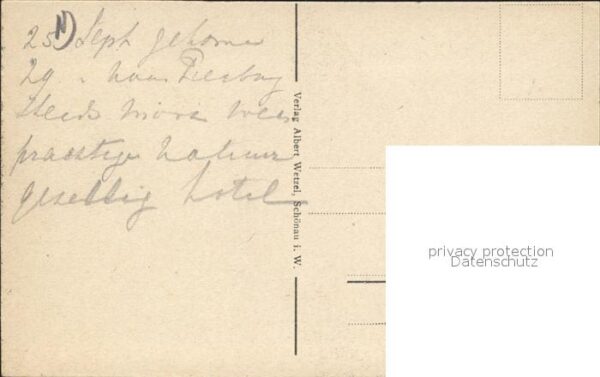 25 Sept gekomen
29 " naar Freiburg
Steeds mooi weer
prachtige natuur
gezellig hotel
Verlag Albert Wetzel, Schönau i. W.
privacy protection
Datenschutz